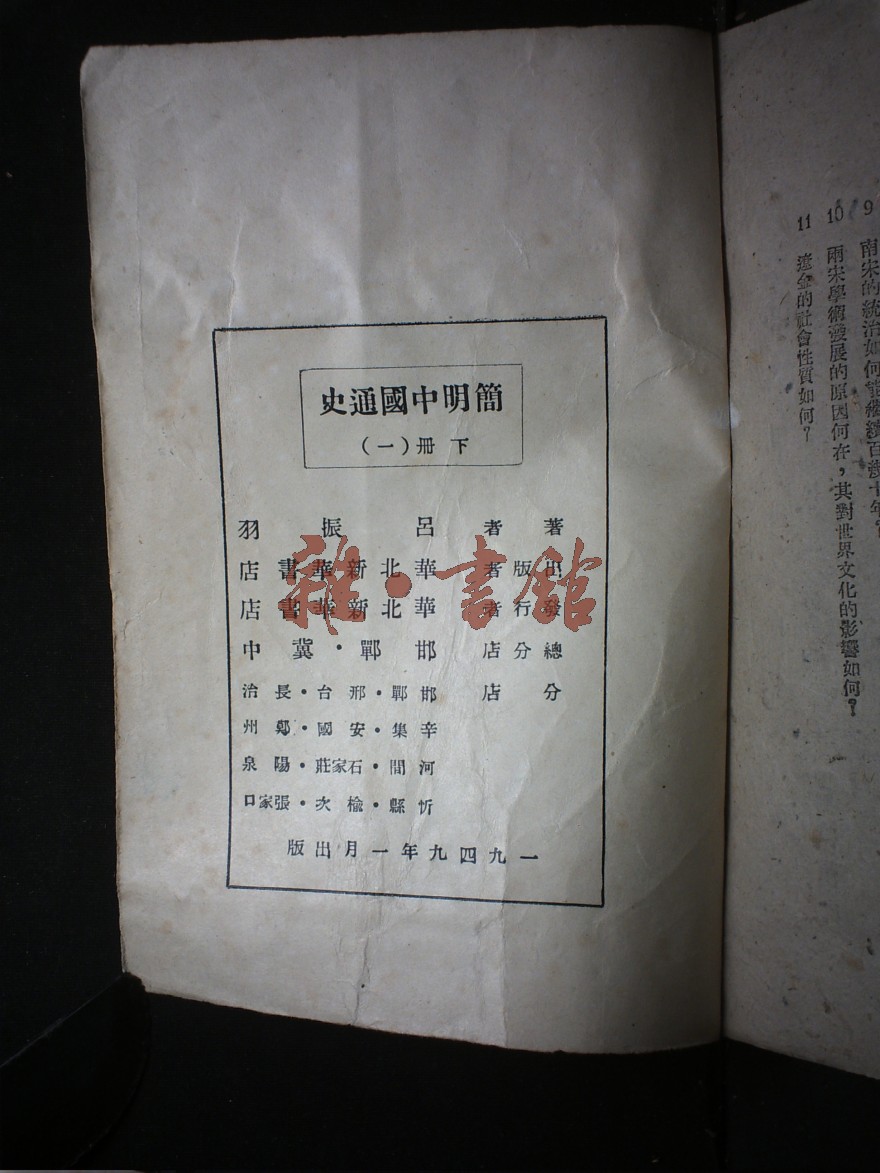 9 南宋的統治如何能繼續百
10 兩宋學術發展的原因何在，其對世界文化的影響如何？
11 遼金的社會性質如何？
簡明中國通史
下冊（一）
著者 呂振羽
出版者 華北新華書店
發行者 華北新華書店
總分店 邯鄲・冀中
分店 邯鄲・邢台・長治
辛集・安國・鄭州
河間・石家莊・陽泉
忻縣・榆次・張家口
一九四九年一月出版
雜・書館